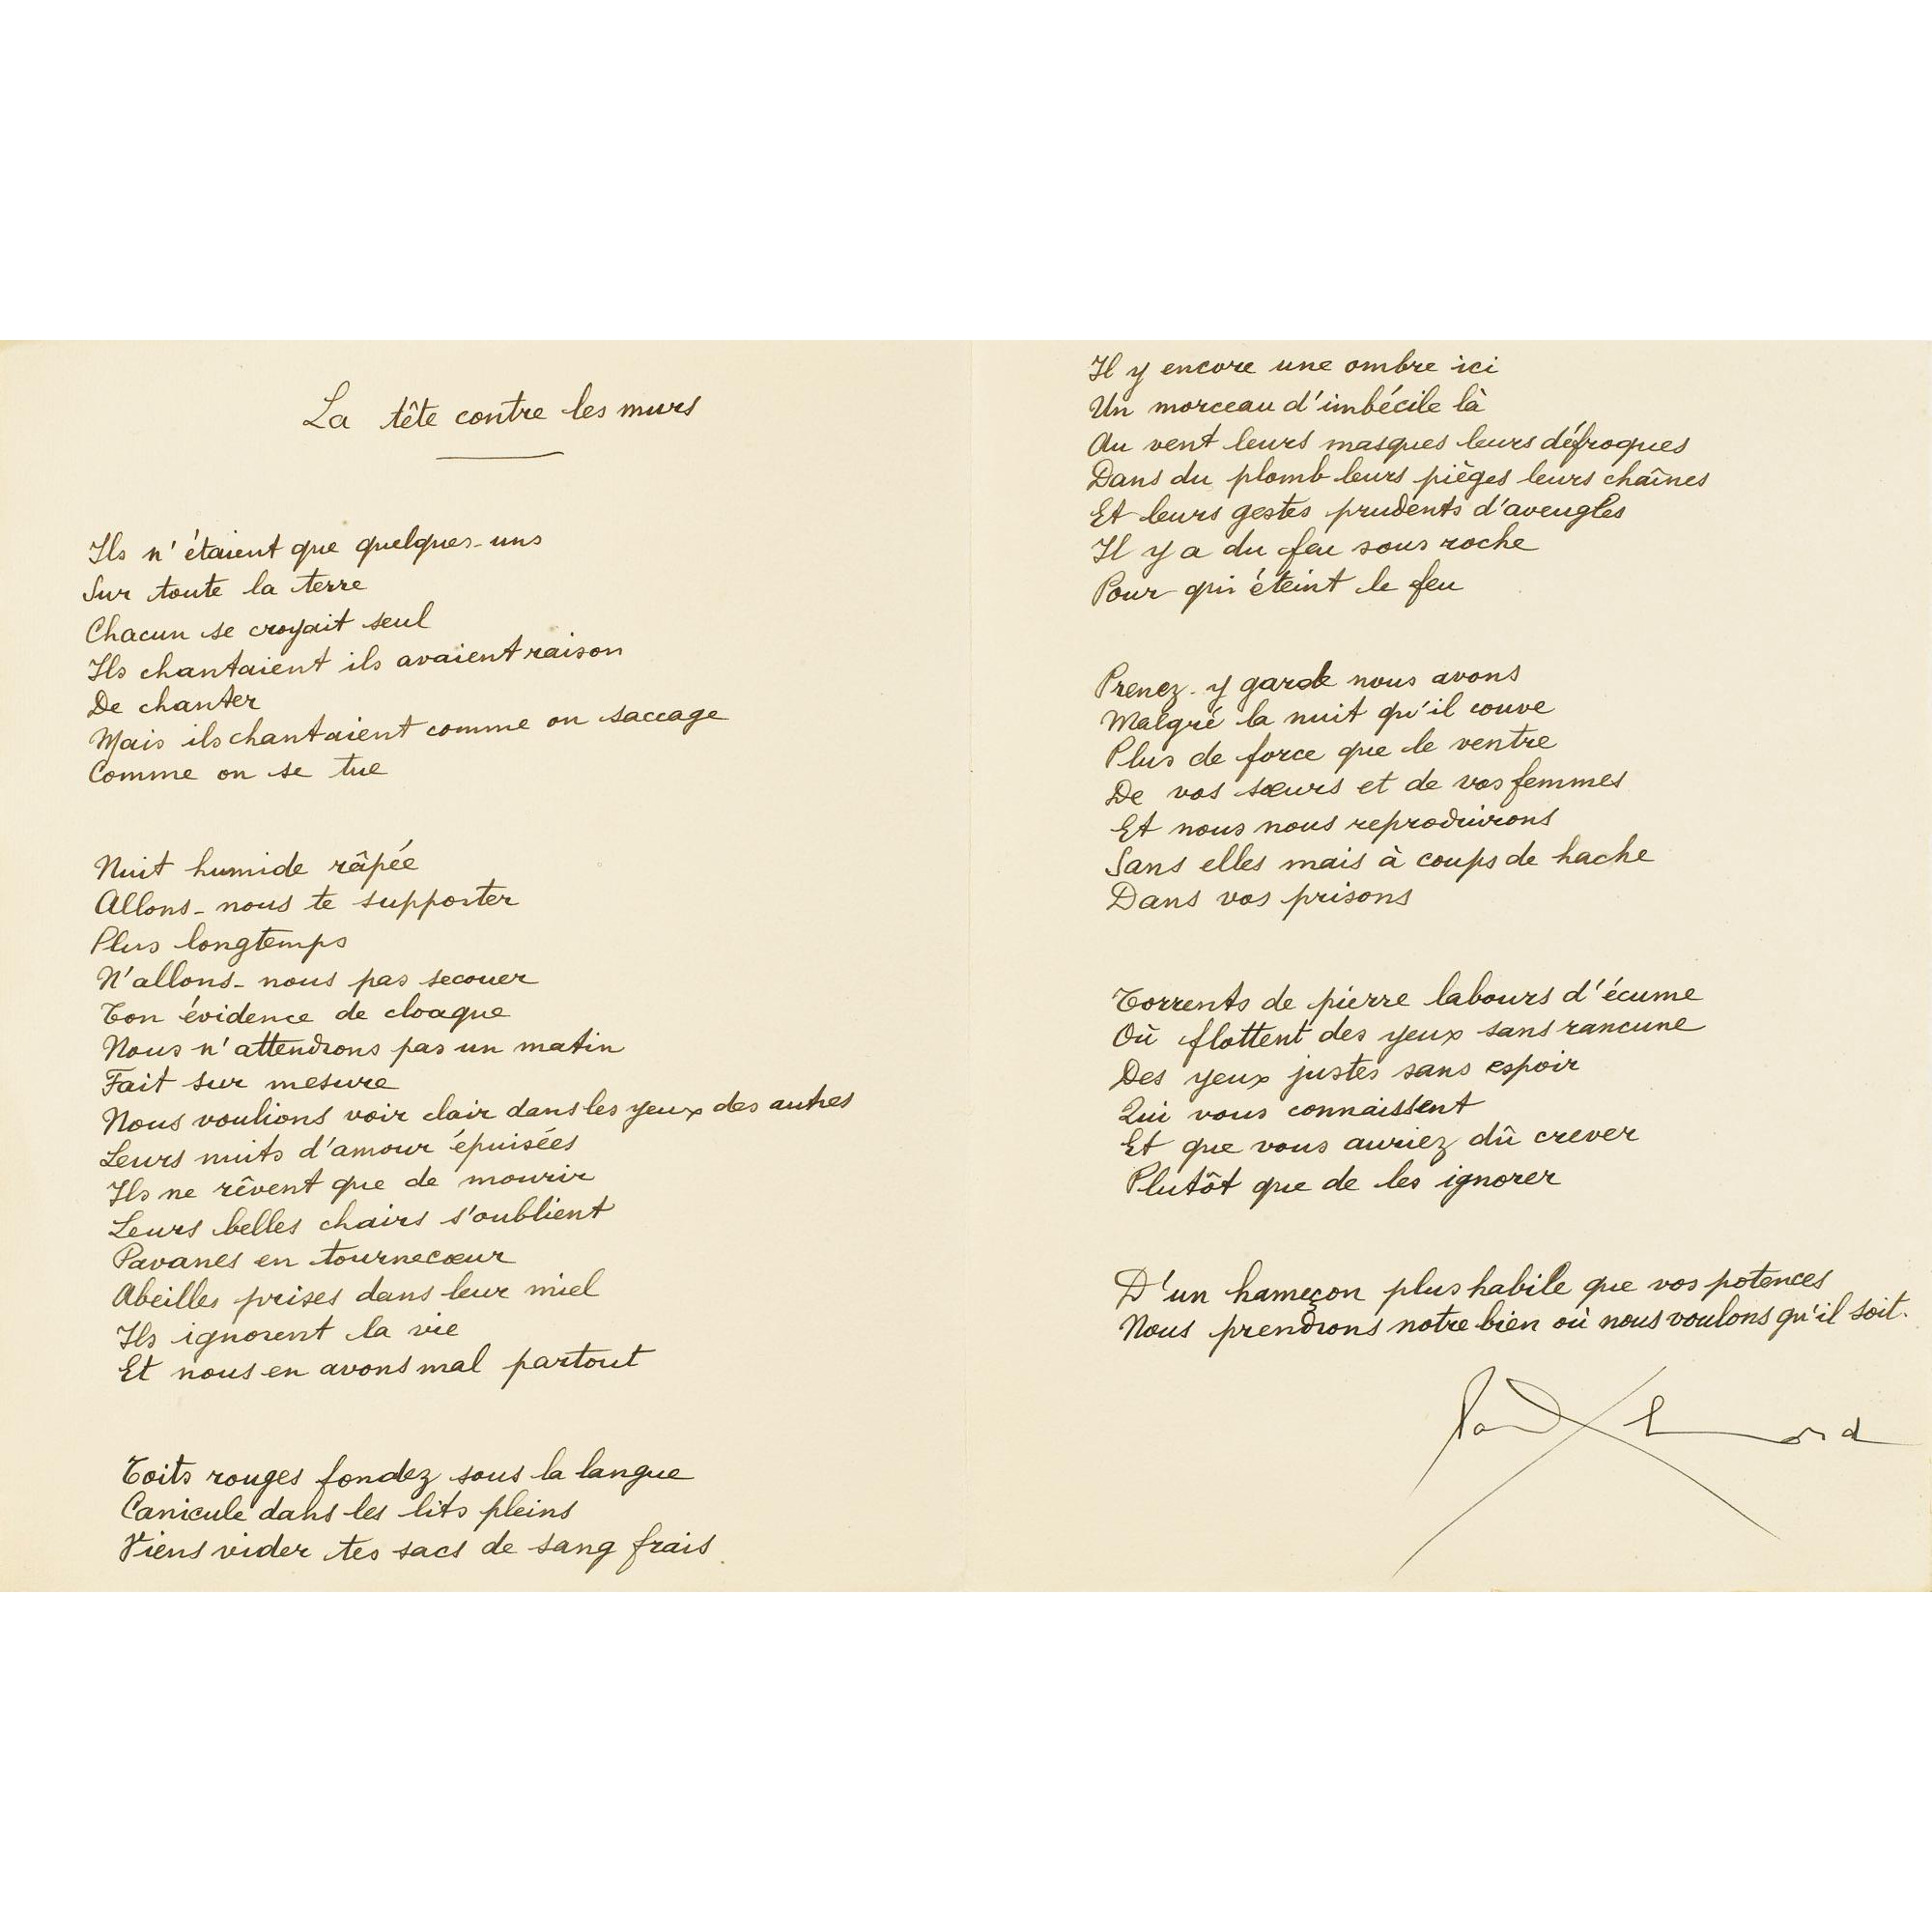 La tête contre les murs
Ils n'étaient que quelques-uns
Sur toute la terre
Chacun se croyait seul
Ils chantaient ils avaient raison
De chanter
Mais ils chantaient comme on saccage
Comme on se tue
Nuit humide râpée
Allons-nous te supporter
Plus longtemps
N'allons-nous pas secouer
Ton évidence de cloaque
Nous n'attendrons pas un matin
Fait sur mesure
Nous voulions voir clair dans les yeux des autres
Leurs nuits d'amour épuisées
Ils ne rêvent que de mourir
Leurs belles chairs s'oublient
Pavanes en tournecœur
Abeilles prises dans leur miel
Ils ignorent la vie
Et nous en avons mal partout
Toits rouges fondez sous la langue
Canicule dans les lits pleins
Viens vider tes sacs de sang frais
Il y encore une ombre ici
Un morceau d'imbécile là
Au vent leurs masques leurs défroques
Dans du plomb leurs pièges leurs chaînes
Et leurs gestes prudents d'aveugles
Il y a du feu sous roche
Pour qui éteint le feu
Prenez-y garde nous avons
Malgré la nuit qu'il couve
Plus de force que le ventre
De vos sœurs et de vos femmes
Et nous nous reproduirons
Sans elles mais à coups de hache
Dans vos prisons
Torrents de pierre labours d'écume
Où flottent des yeux sans rancune
Des yeux justes sans espoir
Qui vous connaissent
Et que vous auriez dû crever
Plutôt que de les ignorer
D'un hameçon plus habile que vos potences
Nous prendrons notre bien où nous voulons qu'il soit.
Paul Eluard